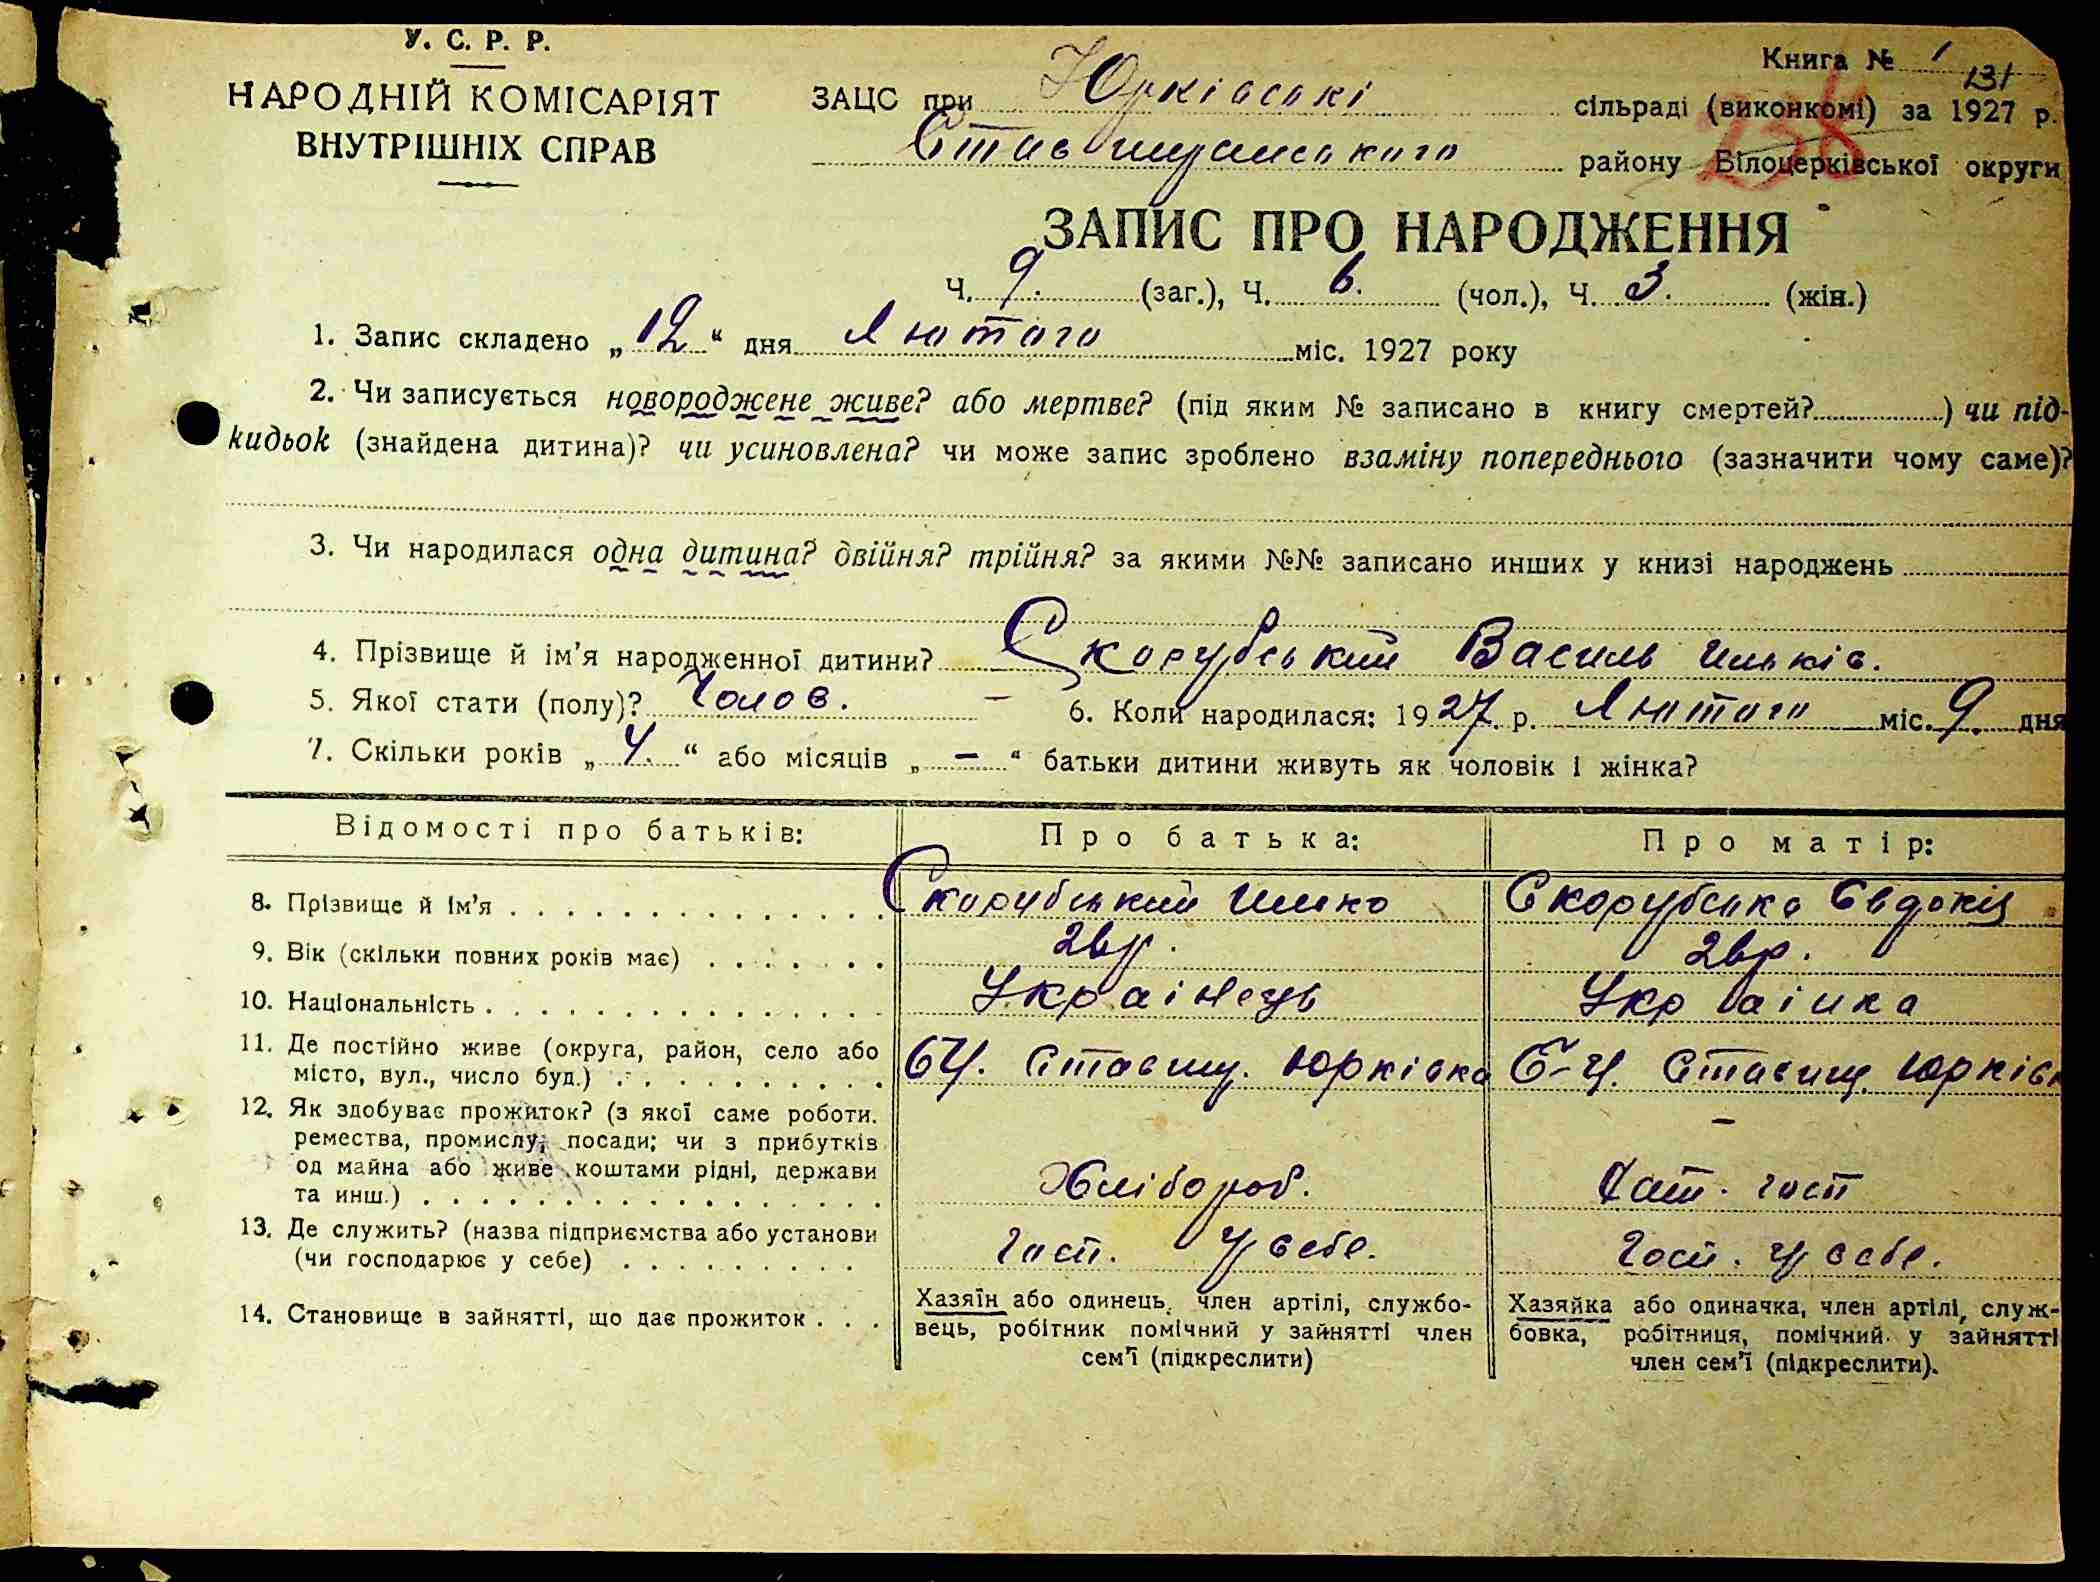 У. С. Р. Р.
НАРОДНІЙ КОМІСАРІЯТ
ВНУТРІШНІХ СПРАВ
Книга № 1
131
ЗАЦС при Юрківські сільраді (виконкомі) за 1927 р.
Ставищанського району Білоцерківської округи
ЗАПИС ПРО НАРОДЖЕННЯ
Ч. 9. (заг.), Ч. 6. (чол.), Ч. 3. (жін.)
1. Запис складено „12“ дня Лютого міс. 1927 року
2. Чи записується новороджене живе? або мертве? (під яким № записано в книгу смертей? ) чи під-
кидьок (знайдена дитина)? чи усиновлена? чи може запис зроблено взаміну попереднього (зазначити чому саме)?
3. Чи народилася одна дитина? двійня? трійня? за якими №№ записано инших у книзі народжень
4. Прізвище й ім'я народженної дитини? Скорубський Василь Ильків.
5. Якої стати (полу)? Чолов. – 6. Коли народилася: 1927. р. Лютого міс. 9. дня
7. Скільки років „4.“ або місяців „–“ батьки дитини живуть як чоловік і жінка?
Відомості про батьків: Про батька: Про матір:
8. Прізвище й ім'я Скорубський Илько Скорубська Євдокія
9. Вік (скільки повних років має) 26р. 26р.
10. Національність Українець Українка
11. Де постійно живе (округа, район, село або
місто, вул., число буд.) БЦ. Ставищ. Юрківка Б-Ц. Ставищ. Юрківк
12. Як здобуває прожиток? (з якої саме роботи.
ремества, промислу, посади; чи з прибутків
од майна або живе коштами рідні, держави
та инш.) Хлібороб. гост
13. Де служить? (назва підприємства або установи
(чи господарює у себе) Госп. у себе. Госп. у себе.
14. Становище в зайнятті, що дає прожиток
Хазяїн або одинець, член артілі, службо-
вець, робітник помічний у зайнятті член
сем'ї (підкреслити)
Хазяйка або одиначка, член артілі, служ-
бовка, робітниця, помічний у зайнятті
член сем'ї (підкреслити).